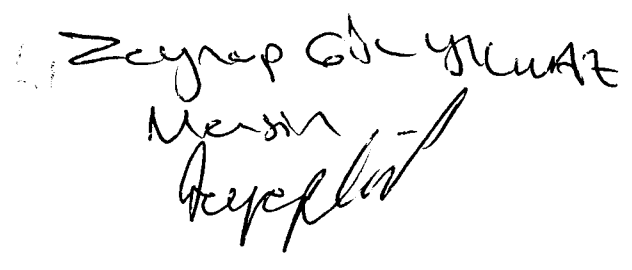 Zeynep Gül YILMAZ
Mersin